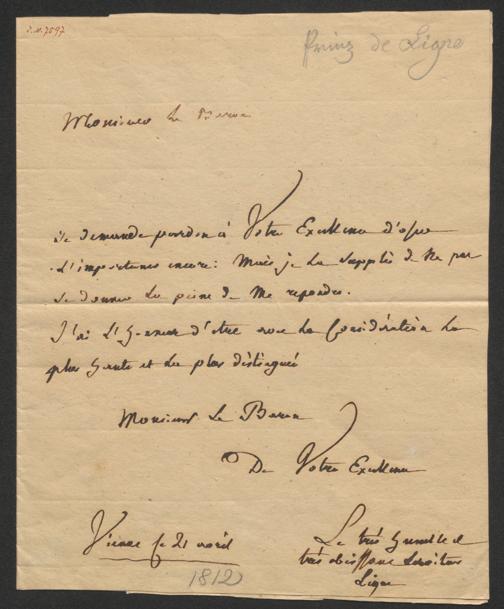 I.N. 7597
Prinz de Ligne
Monsieur Le Baron
Je demande pardon à Votre Excellence d'oser
L'importuner encore: Mais je La Supplie de Ne pas
Se donner La peine de Me repondre.
J'ai L'honneur d'etre avec La Considération La
plus haute et La plus distinguée
Monsieur Le Baron
De Votre Excellence
Vienne ce 21 avril
1812
Le très humble et
très obeissant Serviteur
Ligne